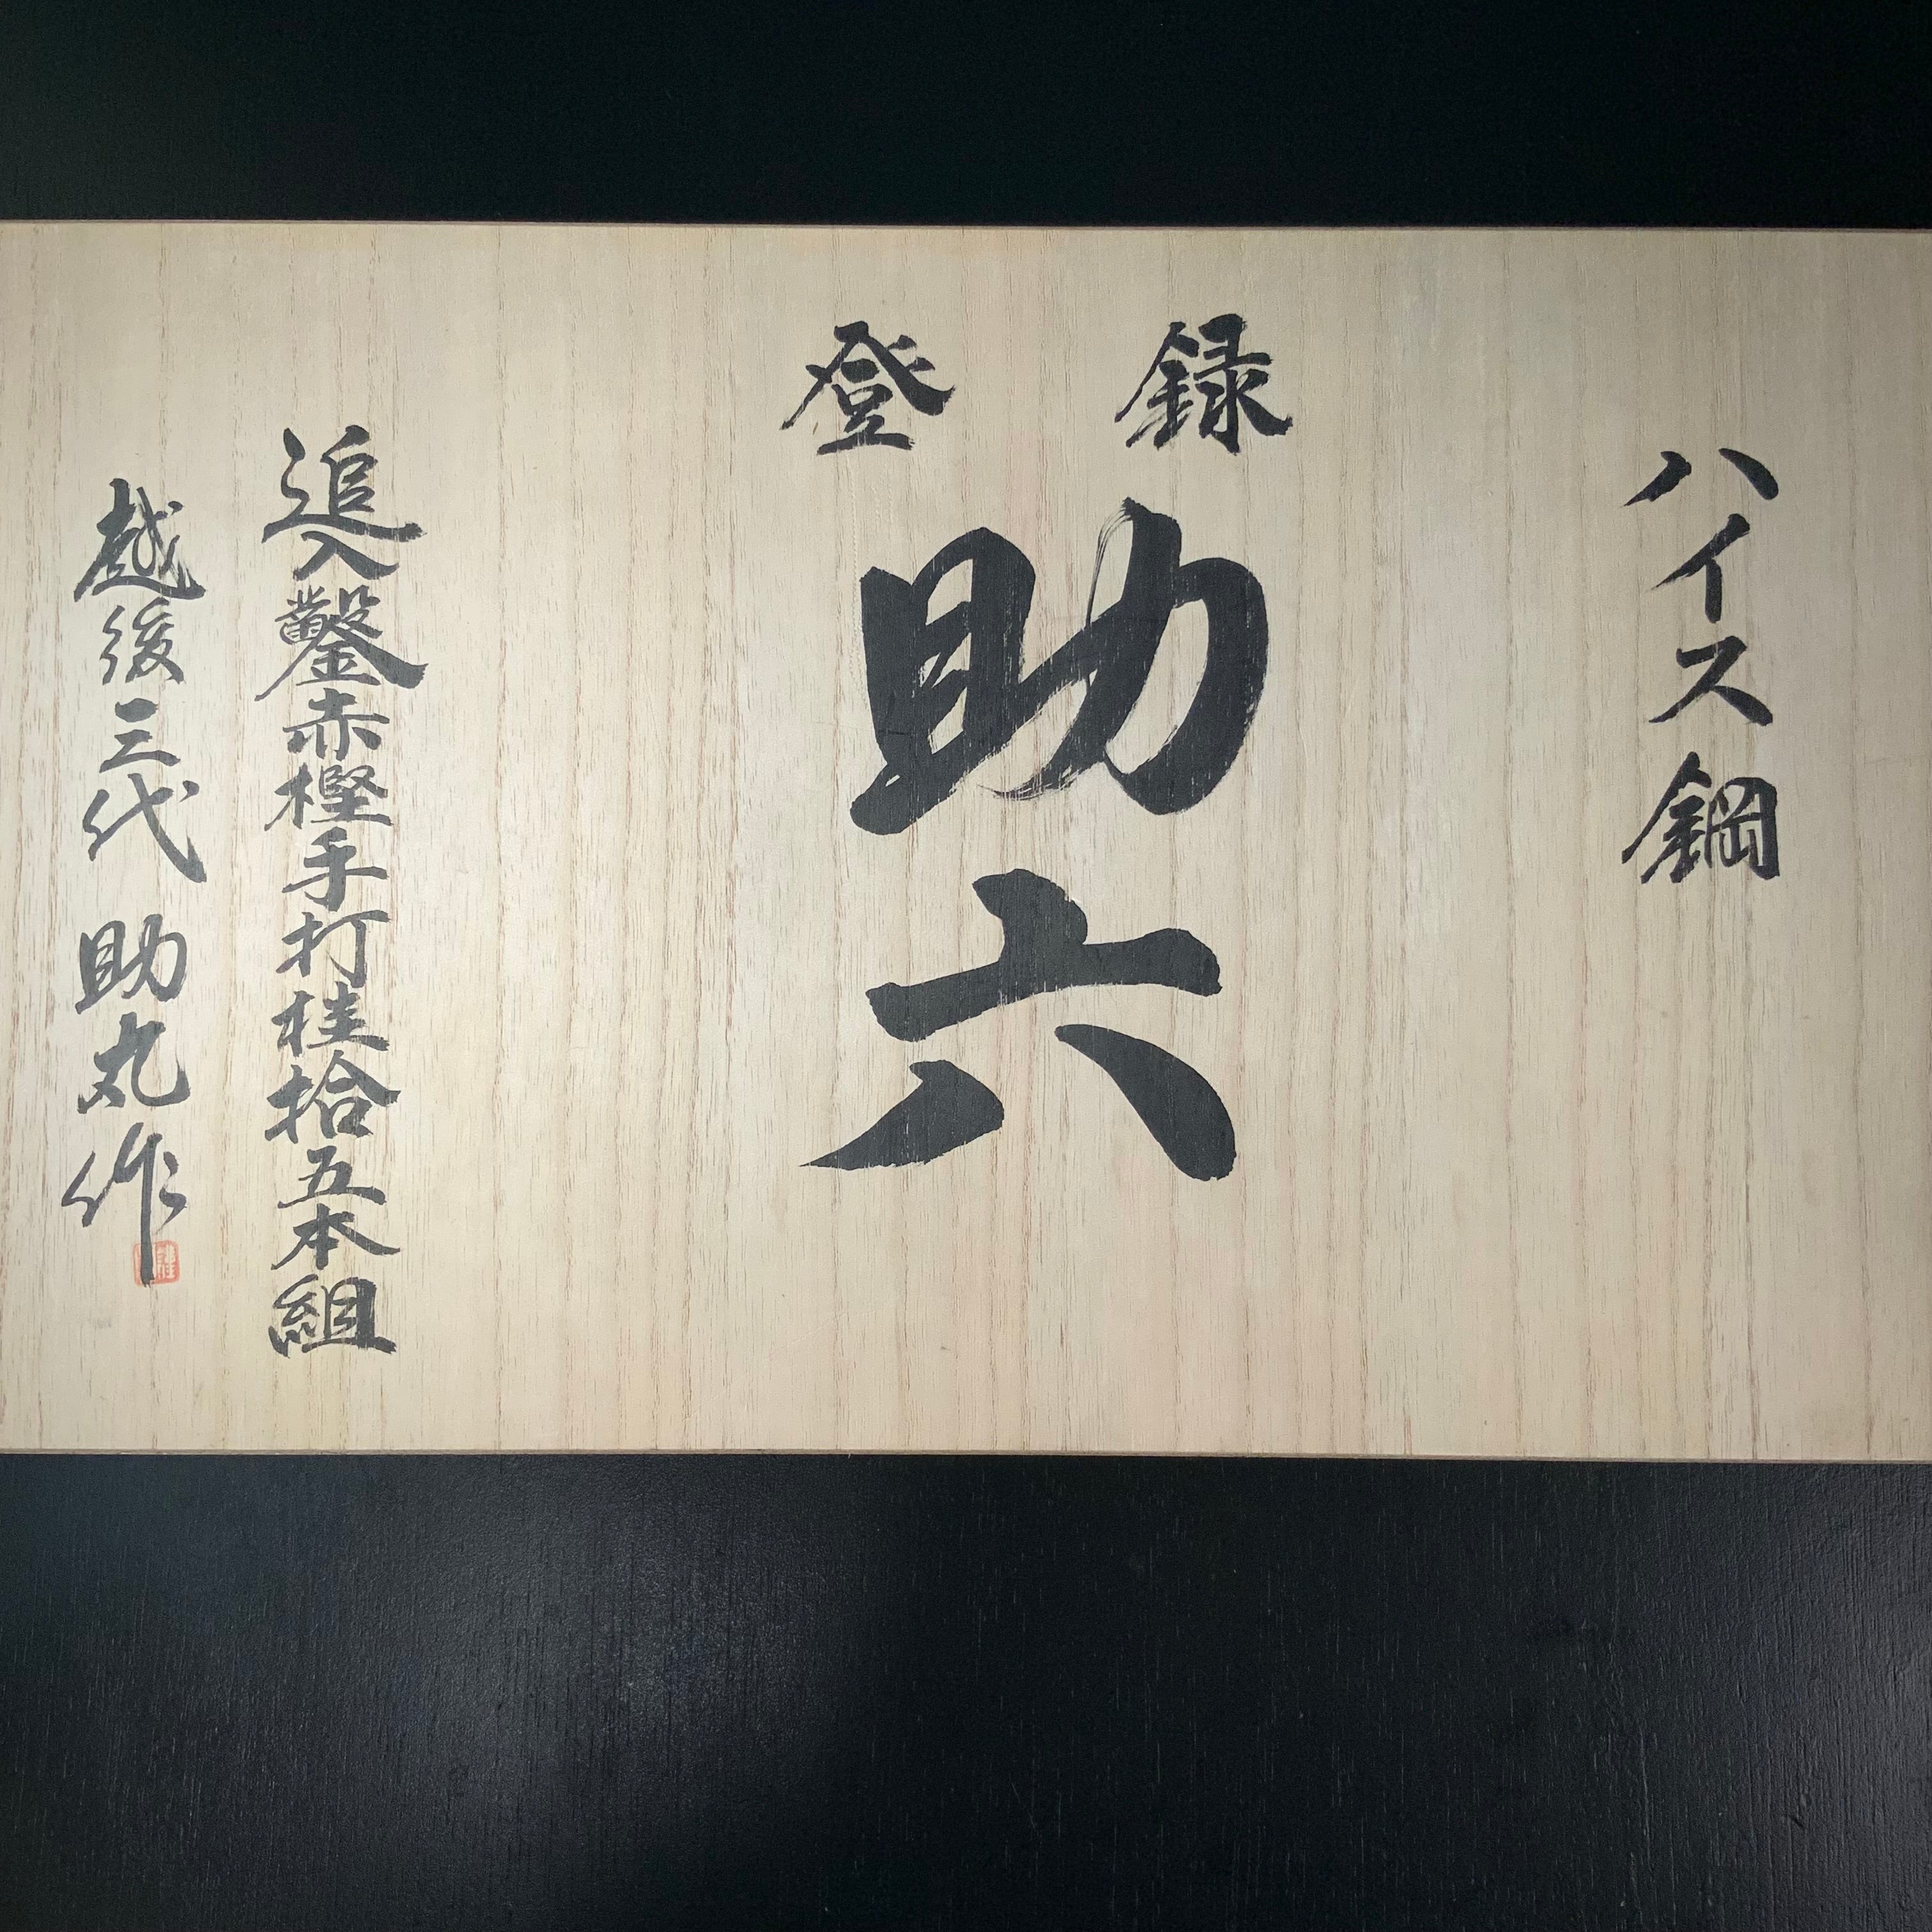 ハイス鋼
登録
助六
追入鑿赤樫手打桂拾五本組
越後三代 助丸作